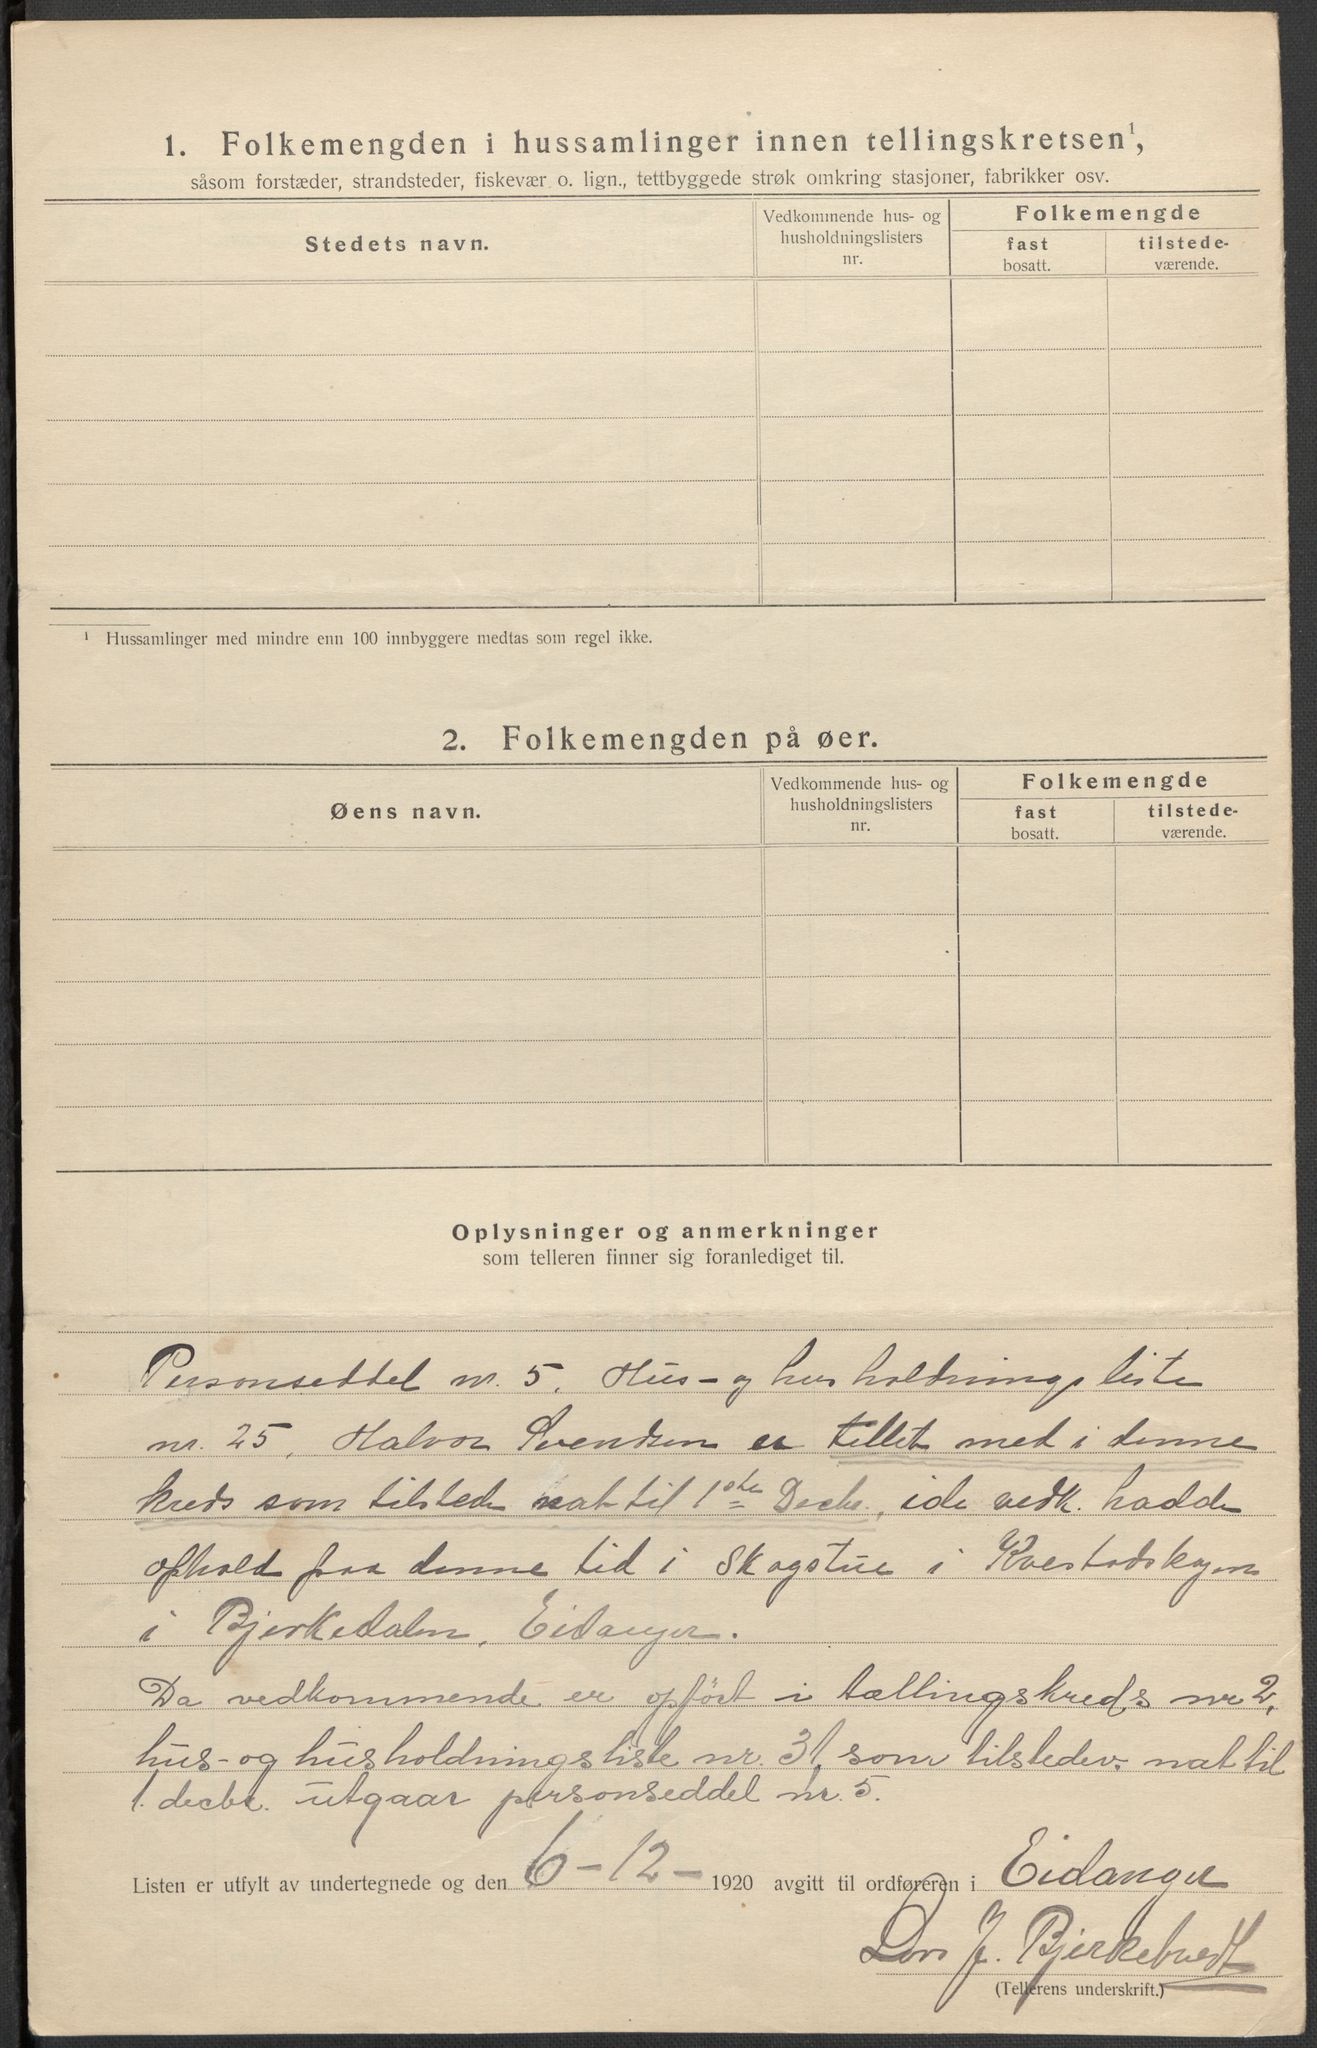 1. Folkemengden i hussamlinger innen tellingskretsen¹,
såsom forstæder, strandsteder, fiskevær o. lign., tettbyggede strøk omkring stasjoner, fabrikker osv.
Stedets navn.
Vedkommende hus- og
husholdningslisters
nr.
Folkemengde
fast
bosatt.
tilstede-
værende.
¹ Hussamlinger med mindre enn 100 innbyggere medtas som regel ikke.
2. Folkemengden på øer.
Øens navn.
Vedkommende hus- og
husholdningslisters
nr.
Folkemengde
fast
bosatt.
tilstede-
værende.
Oplysninger og anmerkninger
som telleren finner sig foranlediget til.
Personseddel nr. 5. Hus- og husholdningsliste
nr. 25, Halvor Svendsen er tellet med i denne
kreds som tilstede nat til 1ste Decbr., ide vedk. hadde
ophold paa denne tid i Skogstue i
i Bjerkedalen, Eidanger.
Da vedkommende er opført i tællingskreds nr 2,
hus- og husholdningsliste nr. 31, som tilstedev. nat til
1. decbr. utgaar personseddel nr. 5.
Listen er utfylt av undertegnede og den 6-12- 1920 avgitt til ordføreren i Eidanger
J. Bjerkebredt
(Tellerens underskrift.)